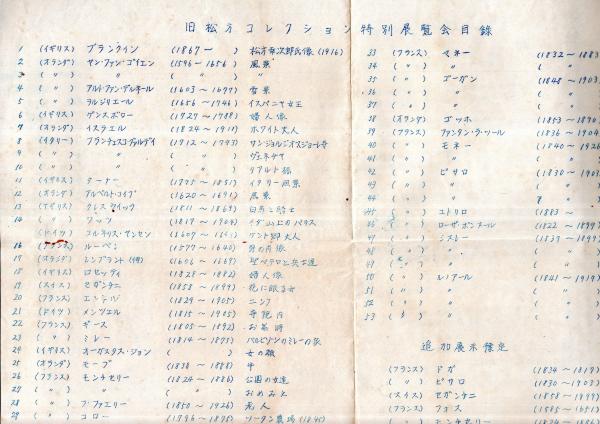 旧松方コレクション特別展覧会目録
1 (イギリス) ブランクイン (1867〜 ) 松方幸次郎氏像 (1916)
2 (オランダ) ヤン・ファン・ゴイエン (1596〜1656) 風景
3 (〃) 〃 (〃) 〃
4 (〃) アルト・ファン・デル・ネール (1603〜1677) 雪景
5 (〃) ラルジリエール (1656〜1746) イスパニヤ女王
6 (イギリス) ゲンスボロー (1727〜1788) 婦人像
7 (オランダ) イスラエル (1824〜1911) ホワイト夫人
8 (イタリー) フランチェスコ・グァルディ (1712〜1793) サン・ジョルジオ
9 (〃) 〃 (〃) ヴェネチヤ
10 (〃) 〃 (〃) リアルト橋
11 (イギリス) ターナー (1775〜1851) イタリー風景
12 (オランダ) アルベルト・コイプ (1620〜1691) 風景
13 (イギリス) (1811〜1869) 白馬と騎士
14 (〃) ワッツ (1817〜1904) イダ山上のパリス
(ドイツ) コルネリス・ヤンセン ケント卿夫人
16 (フランス) ルーベン (1577〜1640)
17 (オランダ) レンブラント (1606〜1669) 聖ペテロと兵士達
18 (イギリス) ロセッティ (1828〜1882) 婦人像
19 (スイス) セガンチニ (1858〜1899) 花に眠る女
20 (フランス) エンネル (1829〜1905) ニンフ
21 (ドイツ) メンツエル (1815〜1905)
22 (フランス) ギース (1805〜1892)
23 (〃) ミレー (1814〜1875) バルビゾンのミレーの家
24 (イギリス) オーガスタス・ジョン ( ) 女の顔
25 (オランダ) モーブ (1838〜1888) 牛
26 (フランス) モンチセリー (1824〜1886) 公園の女達
27 (〃) 〃 (〃)
28 (〃) ラファエリー (1850〜1926) 老人
29 (〃) コロー (1796〜1875)
33 (フランス) マネー (1832〜1883
34 (〃) 〃 〃
35 (〃) ゴーガン (1848〜1903
36 (〃) 〃 〃
37 (〃) 〃 〃
38 (オランダ) ゴッホ (1853〜1890
39 (フランス) ファンタン・ラ・ツール (1836〜1904
40 (〃) モネー (1840〜1926
41 (〃) 〃 〃
42 (〃) ピサロ (1830〜1903
43 (〃) 〃 〃
44 (〃) 〃 〃
45 ユトリロ (1883〜
ローザ・ボンヌール (1822〜1899
47 シスレー (1839〜1899
〃 〃
〃 〃
50 (〃) ルノアール (1841〜1919
51 (〃) 〃 〃
52 (〃) 〃 〃
53 (〃) 〃 〃
追加展示予定
(フランス) ドガ (1834〜1917
(〃) ピサロ (1830〜1903
(スイス) セガンチニ (1858〜1899
(フランス)
(〃) モンチセリー (1824〜1886